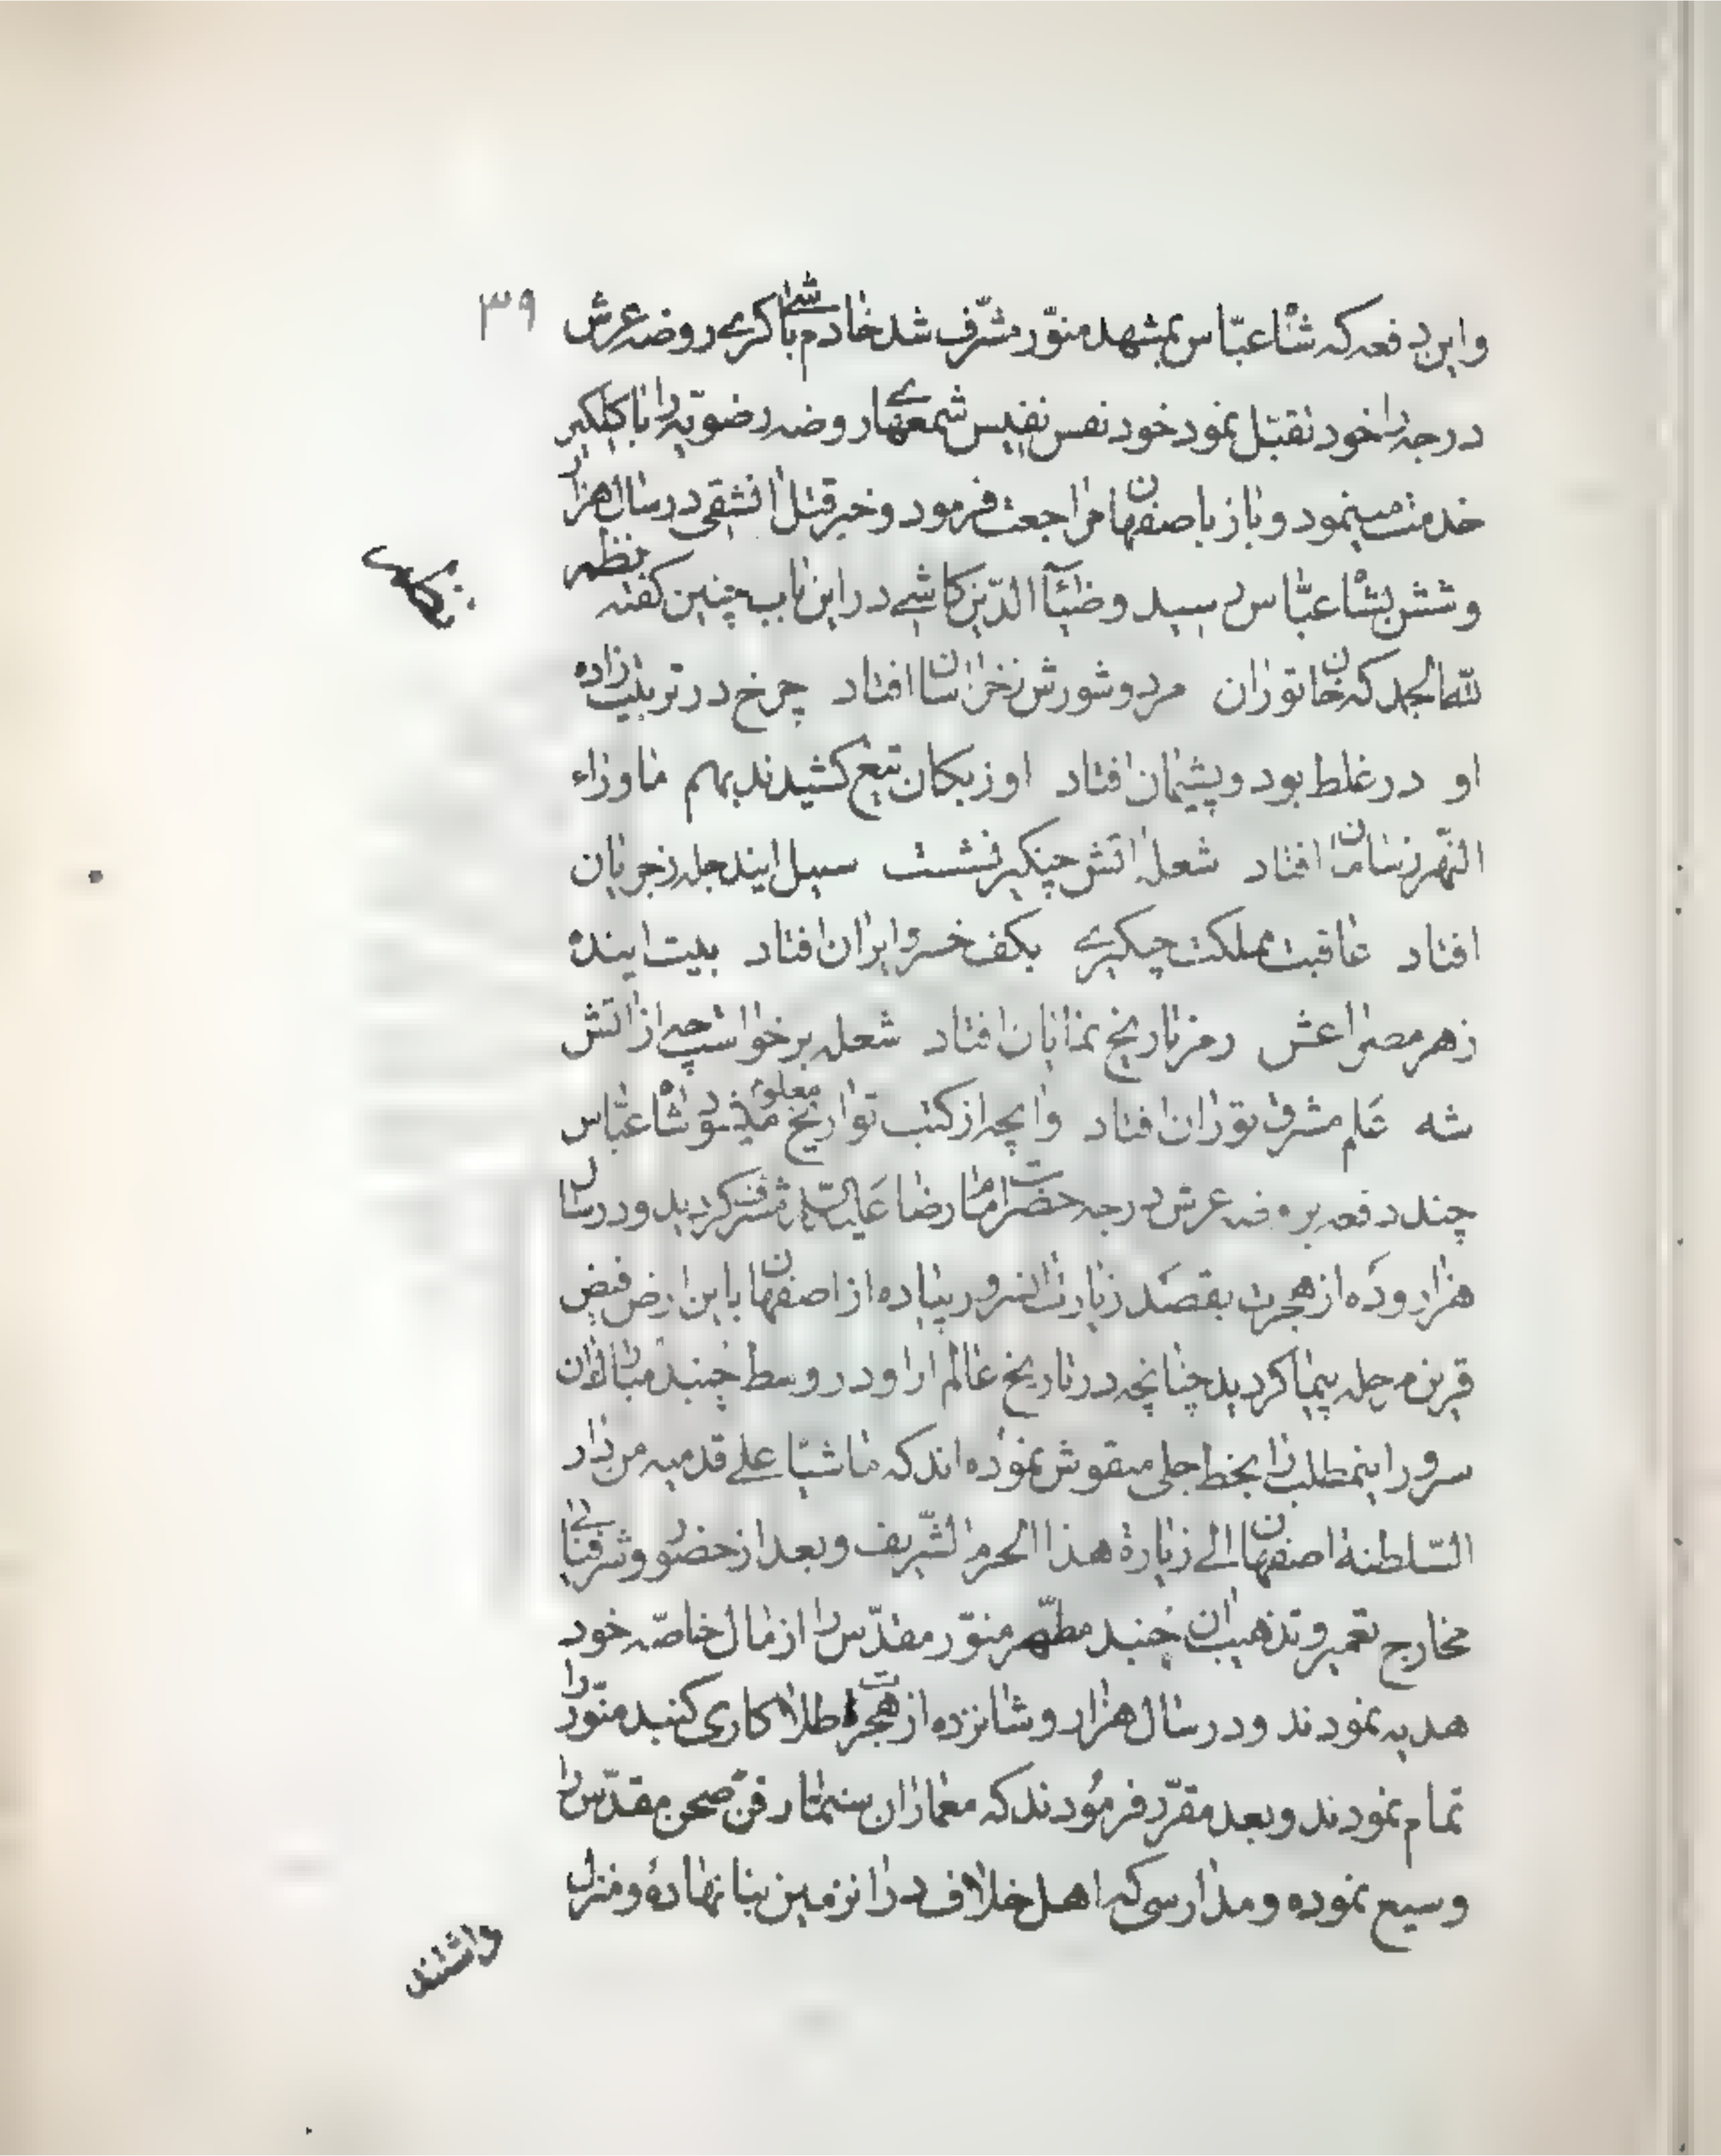 ۳۹
و این دفعه که شاه عباس بمشهد منوّر مشرّف شد خادم باشی کری روضه عرش
درجه را خود تقبّل نمود خود نفس نفیس شمعهای روضه رضویّه را با کلکیر
خدمت مینمود و باز باصفهان مراجعت فرمود و خبر قتل انشقی در سال هزار
و شش بشاه عبّاس رسید و ضیآء الدّین کاشی در این باب چنین کفته نظم
لله الحمد که خان توران مرد و شورش ز خراسان افتاد چرخ در تربیت زاده
او در غلط بود و پشیمان افتاد اوزبکان تیغ کشیدند بهم ماوراء
النّهر ز سامان افتاد شعله اتش چنکیز نشست سیل اینده ز جریان
افتاد عاقبت مملکت چنکیزی بکف خسرو ایران افتاد بیت اینده
ز هر مصراعش رمز تاریخ نمایان افتاد شعله برخواست چه از اتش
شه علم مشرق توران افتاد و انچه از کتب تواریخ معلوم میشود شاه عبّاس
چند دفعه بروضه عرش درجه حضرت امام رضا علیه السّلام مشرّف کردید و در سال
هزار و ده از هجرت بقصد زیارت انسرور پیاده از اصفهان باین ارض فیض
قرین مرحله پیما کردید چنانچه در تاریخ عالم ارا و در وسط کنبد مبارک ان
سرور اینمطلب را بخط جلی منقوش نموده اند که ماشیا علی قدمیه من دار
السّلطنة اصفهان الی زیارة هذا الحرم الشّریف و بعد از حضور و شرفیابی
مخارج تعمیر و تذهیب ان کنبد مطهّر منوّر مقدّس را از مال خاصّه خود
هدیه نمودند و در سال هزار و شانزده از هجرت طلا کاری کنبد منوّر را
تمام نمودند و بعد مقرّر فرمودند که معماران سنمّار فن صحن مقدّس را
وسیع نموده و مدارسی که اهل خلاف در انزمین بنا نهاده و منزل
داشتند